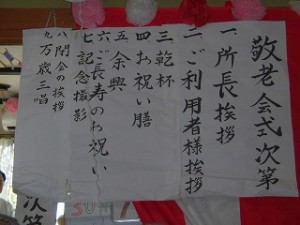 敬老会式次第
一 所長挨拶
二 ご利用者様挨拶
三 乾杯
四 お祝い膳
五 余興
六 ご長寿のお祝い
七 記念撮影
八 閉会の挨拶
九 万歳三唱
次第